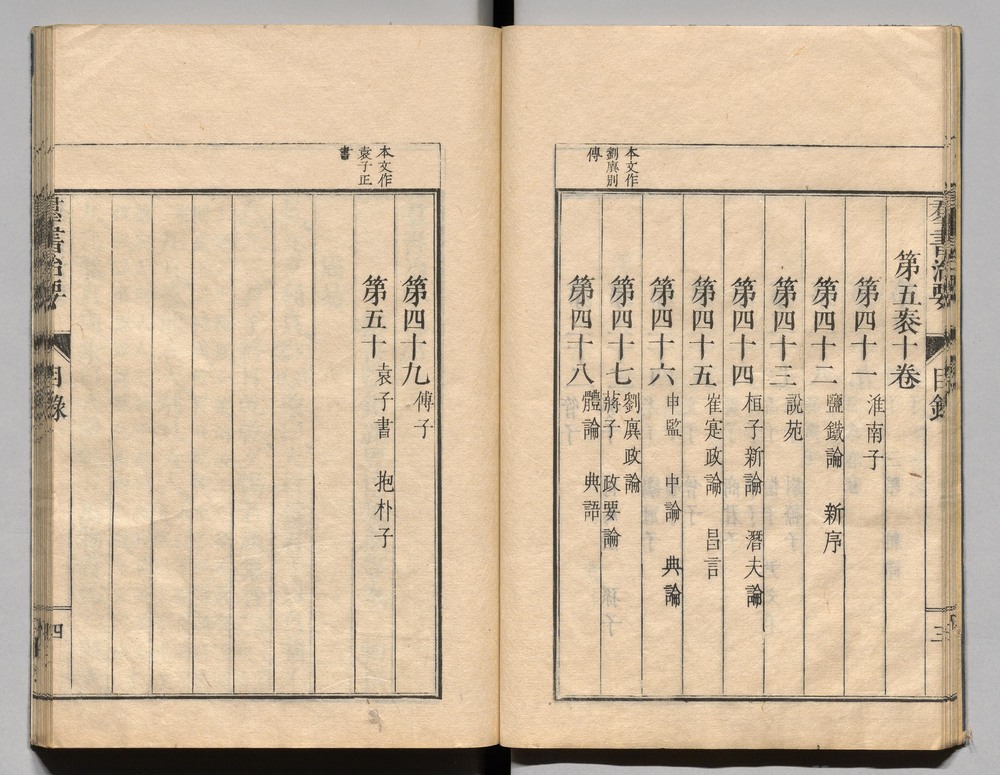 羣書治要
目錄
三
本文作
劉廙別
傳
第五袠十卷
第四十一 淮南子
第四十二 鹽鐵論 新序
第四十三 說苑
第四十四 桓子新論 潛夫論
第四十五 崔寔政論 昌言
第四十六 申監 中論 典論
第四十七 劉廙政論
蔣子 政要論
第四十八 體論 典語
本文作
袁子正
書
第四十九 傅子
第五十 袁子書 抱朴子
羣書治要
目錄
四